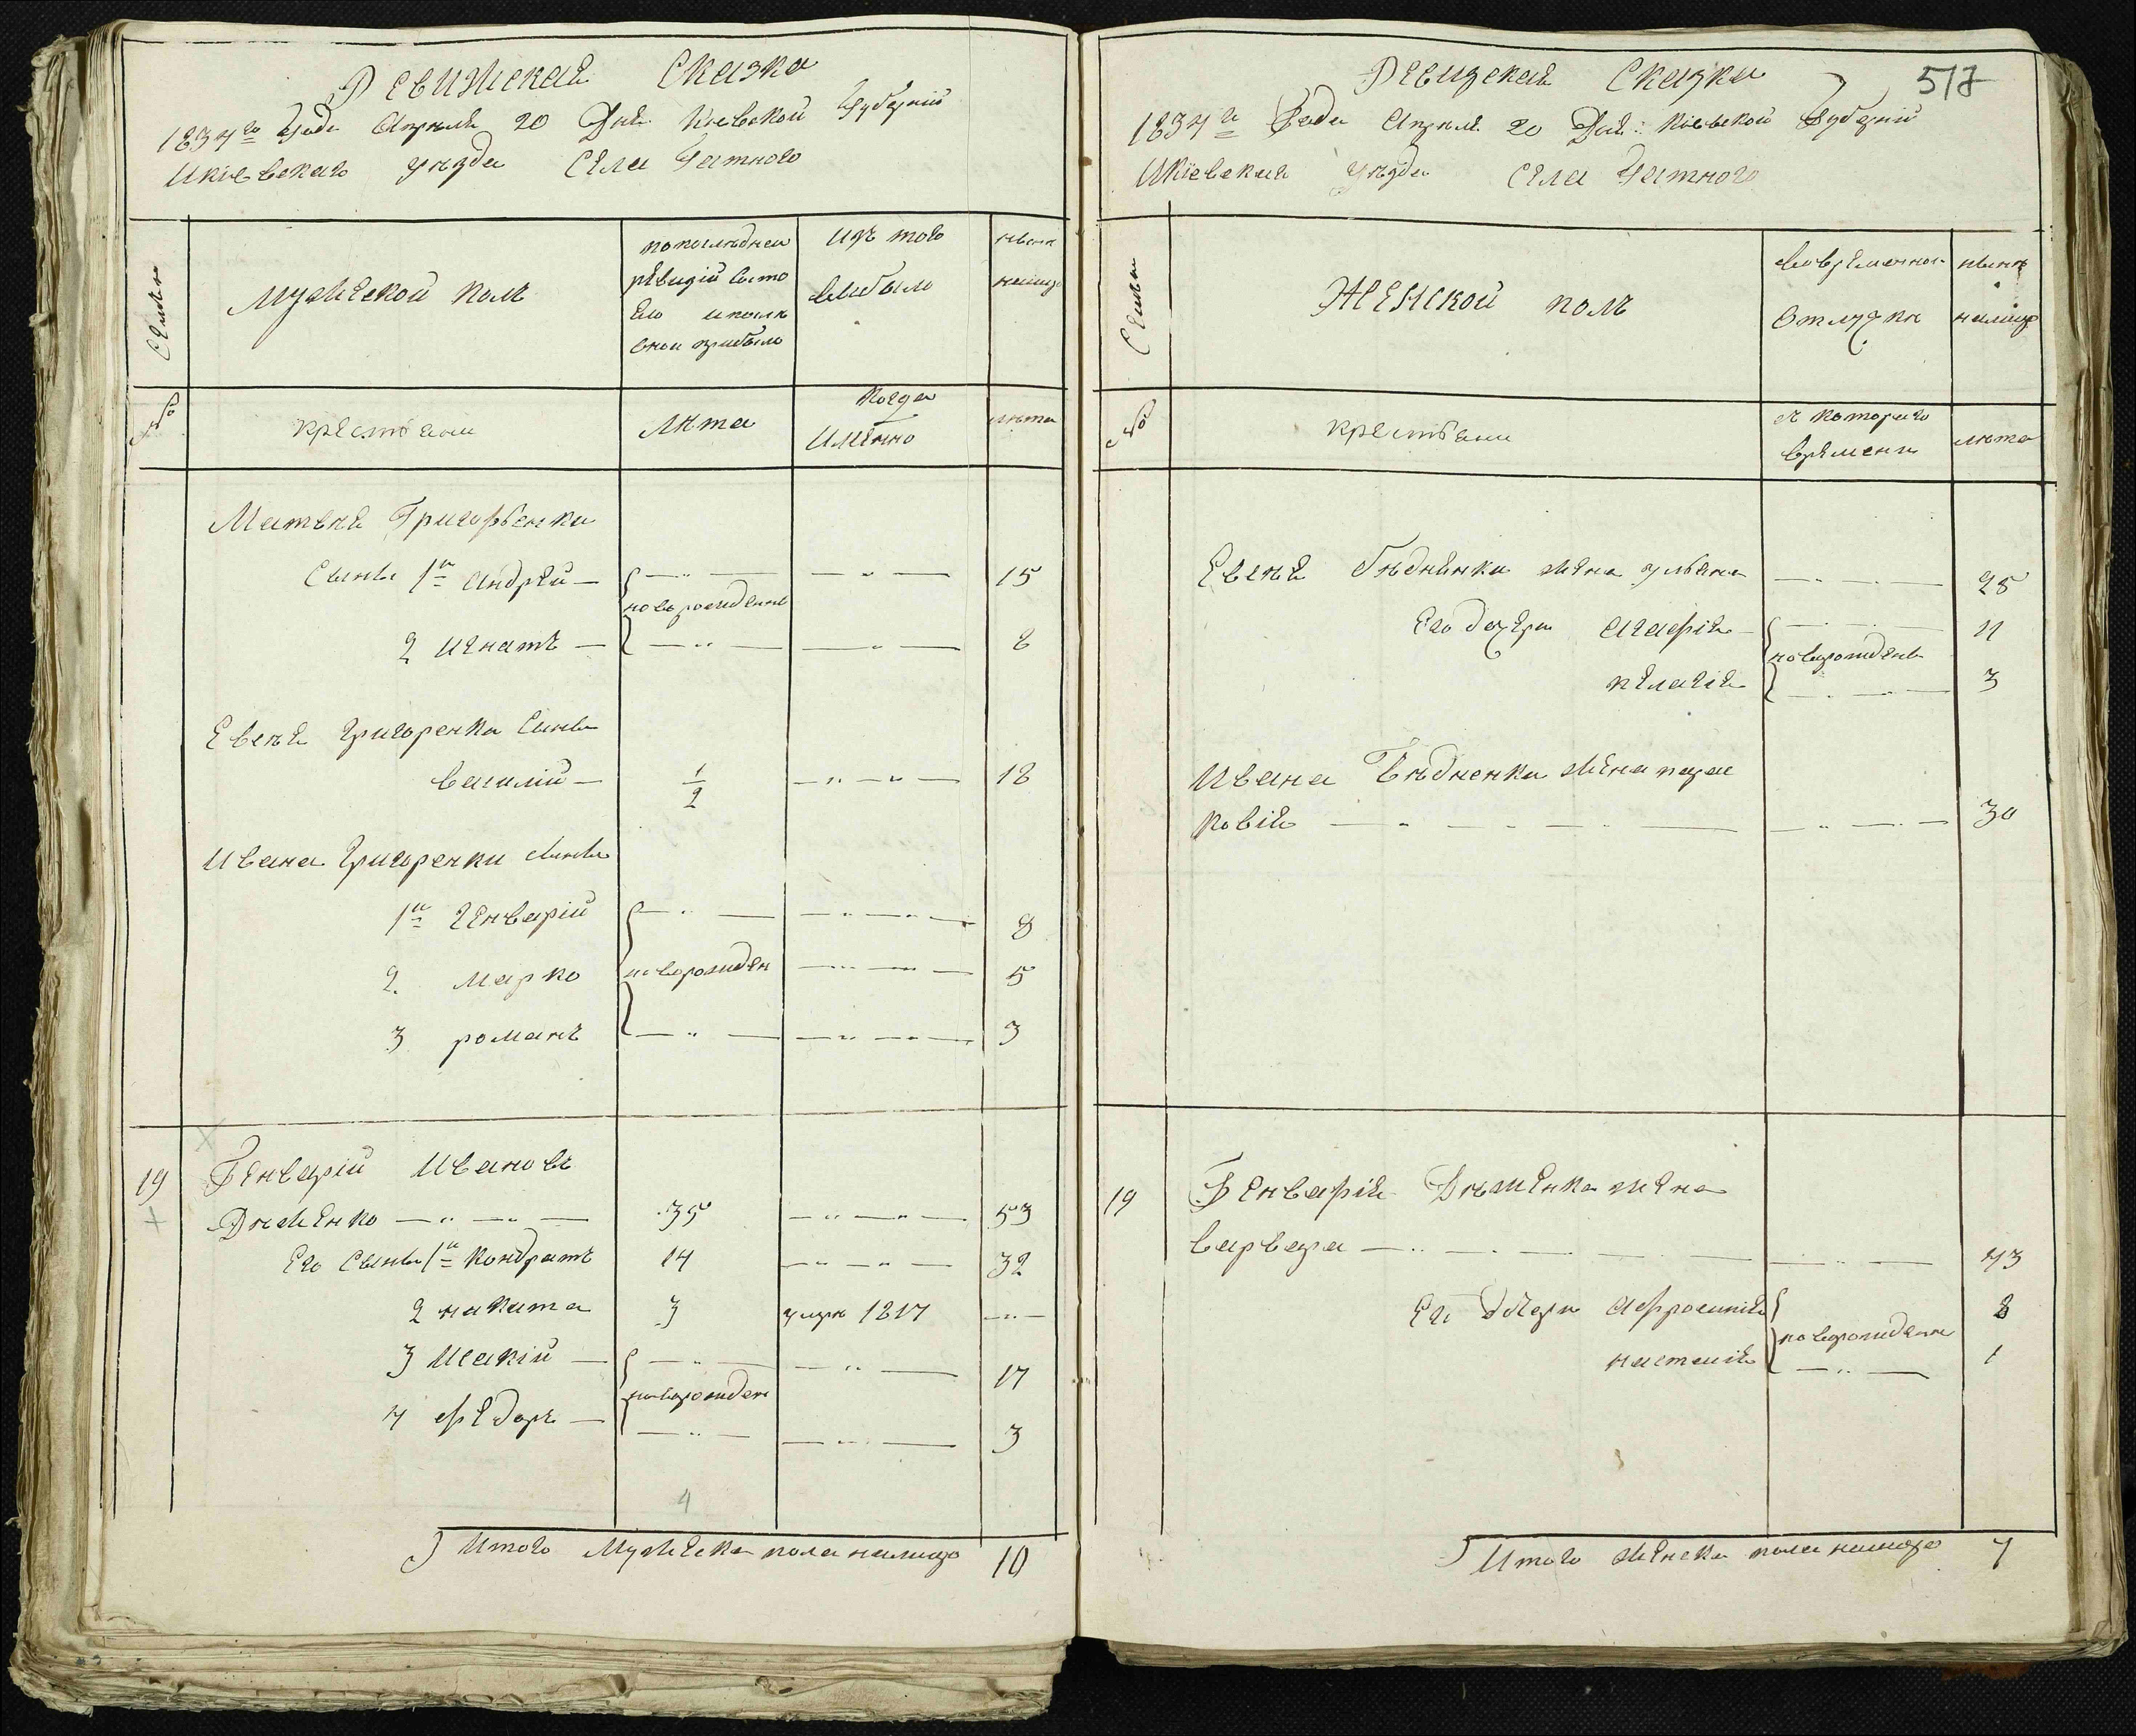 Ревижская Сказка
1834го Года Апреля 20 Дня Киевской Губерній
Икіевскаго уезда Села Гатного
Семьи
Мужеской полъ
попоследней
ревизіи состо
яло ипосле
оной прибыло
изъ того
выбыло
ныне
налицо
№
крестьяне
лета
Когда
именно
лета
Матвея Григорьенка
Сыны 1й Андрей 15
новорожденны
2 Игнатъ 8
Евсея Григоренка Сынъ
Василій 1/2 18
Ивана Григоренки сыны
1й Генварій 8
2. Марко новорожден 5
3 романъ 3
19 Генварій Ивановъ
Деменко 35 53
Его Сыны 1й Кондратъ 14 32
2 никита 3 умре 1817
3 Исакій 17
новорожден
4 Федоръ 3
4
Итого Мужеска пола налицо 10
Ревизская Сказка
517
1834го Года Апреля 20 Дня: Кіевской Губерній
Икіевскаго Уезда Села Гатного
Семьи
Женской полъ
вовременной
отлучке
ныне
налицо
№
крестьяне
съ которого
времени
лета
Евсея Беденка жена ульяна 25
Его дочери агафія 11
новорожденны
пелагія 3
Ивана Бедненка жена парас
ковія 30
19 Генварія Деменка жена
варвара 43
Его дочери Афросинія 8
новорожденны
настасія 1
Итого женска пола налицо 7